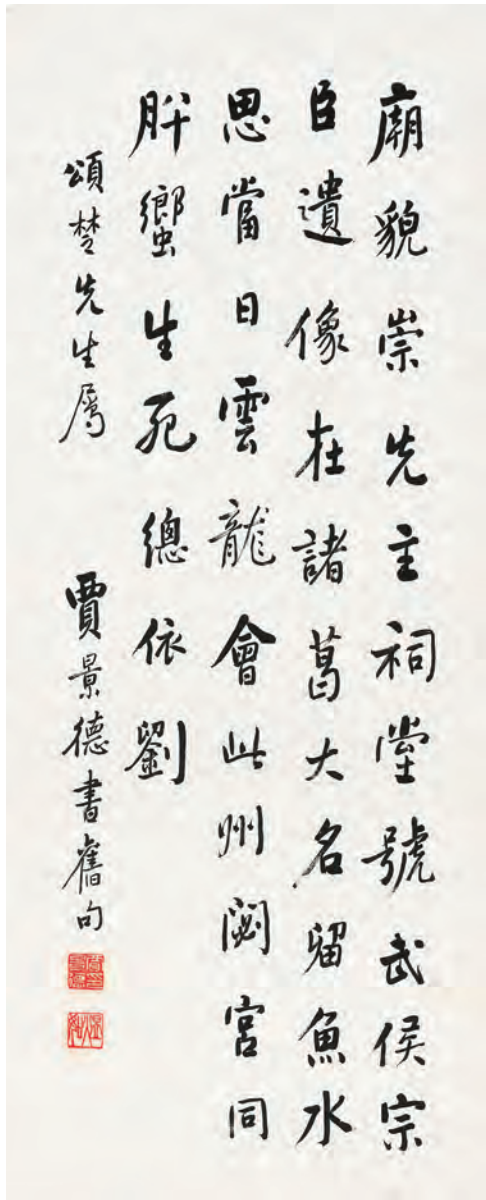 廟貌崇先主祠堂號武侯宗
臣遺像在諸葛大名留魚水
思當日雲龍會此州閟宮同
肸蠁生死總依劉
頌楚先生屬
賈景德書舊句